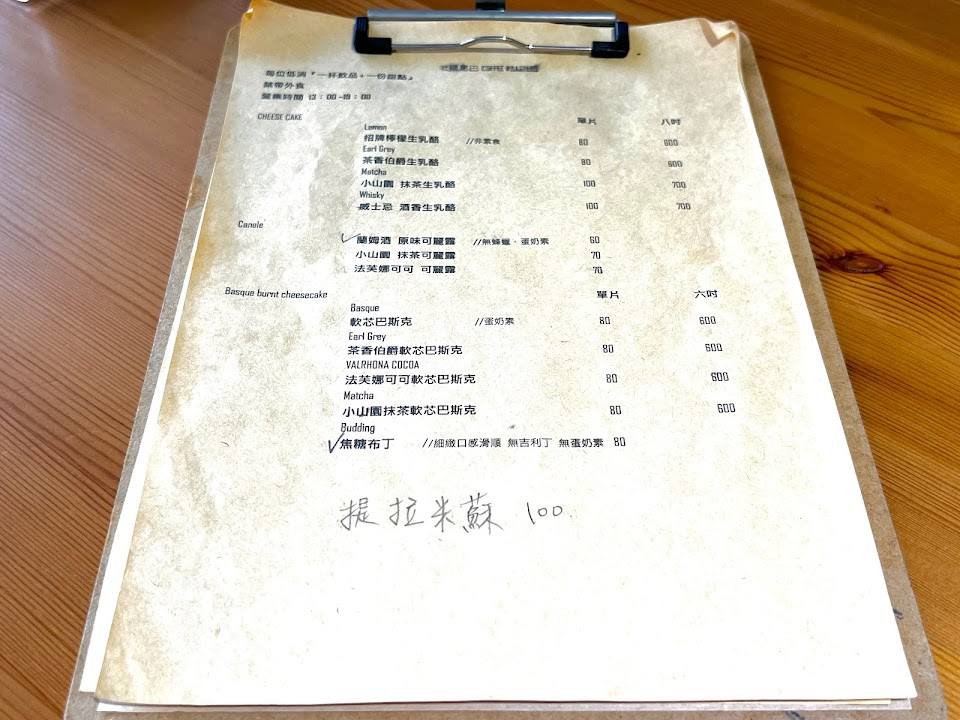 COFFEE ROASTERS
每位低消『一杯飲品+一份甜點』
禁帶外食
營業時間 13:00-19:00
CHEESE CAKE 單片 八吋
Lemon
招牌檸檬生乳酪 //非素食 80 600
Earl Grey
茶香伯爵生乳酪 80 600
Matcha
小山園 抹茶生乳酪 100 700
Whisky
威士忌 酒香生乳酪 100 700
Canele
蘭姆酒 原味可麗露 //無蜂蠟、蛋奶素 60
小山園 抹茶可麗露 70
法芙娜可可 可麗露 70
Basque burnt cheesecake 單片 六吋
Basque
軟芯巴斯克 //蛋奶素 80 600
Earl Grey
茶香伯爵軟芯巴斯克 80 600
VALRHONA COCOA
法芙娜可可軟芯巴斯克 80 600
Matcha
小山園抹茶軟芯巴斯克 80 600
Budding
焦糖布丁 //細緻口感滑順 無吉利丁 無蛋奶素 80
提拉米蘇 100